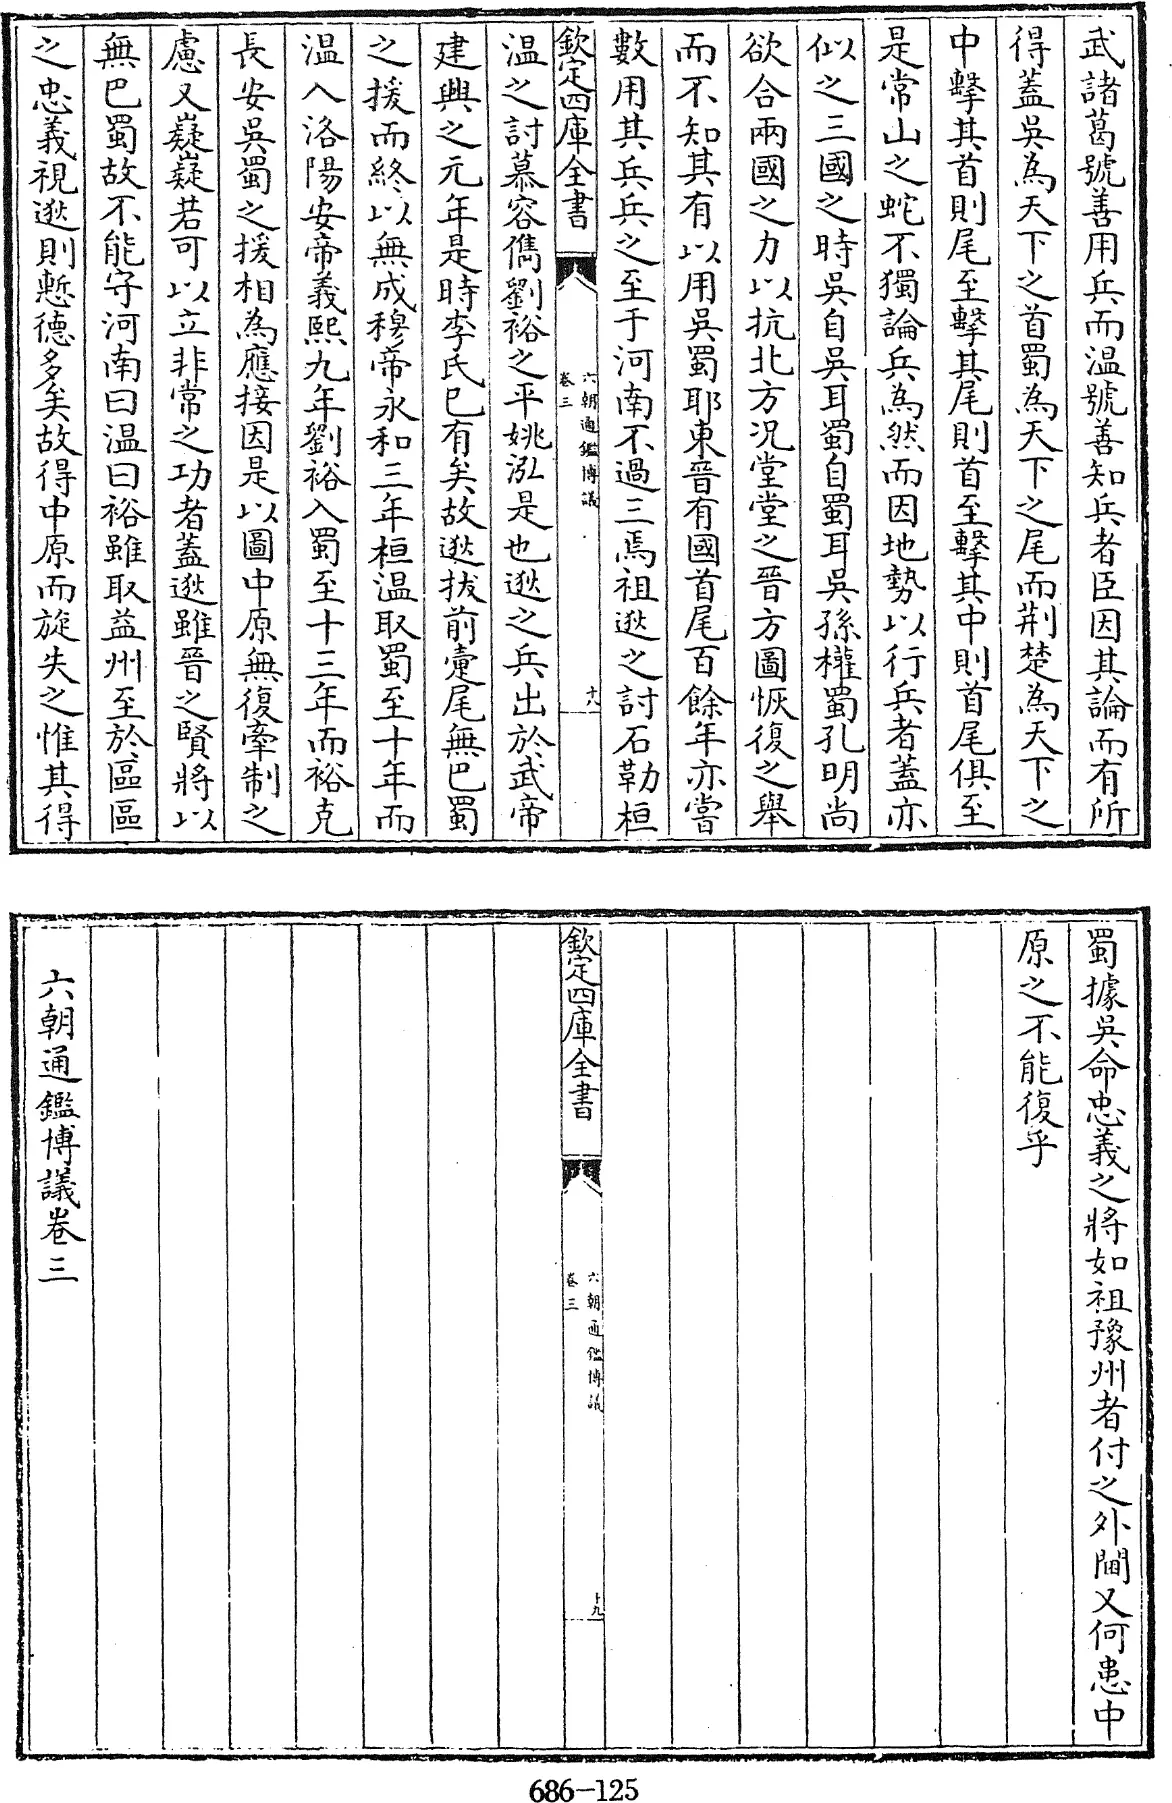 武諸葛號善用兵而温號善知兵者臣因其論而有所
得蓋吳為天下之首蜀為天下之尾而荆楚為天下之
中擊其首則尾至擊其尾則首至擊其中則首尾俱至
是常山之蛇不獨論兵為然而因地勢以行兵者蓋亦
似之三國之時吳自吳耳蜀自蜀耳吳孫權蜀孔明尚
欲合兩國之力以抗北方況堂堂之晉方圖恢復之舉
而不知其有以用吳蜀耶東晉有國首尾百餘年亦嘗
數用其兵兵之至于河南不過三焉祖逖之討石勒桓
欽定四庫全書
六朝通鑑博議
卷三
十八
温之討慕容儁劉裕之平姚泓是也逖之兵出於武帝
建興之元年是時李氏已有矣故逖拔前疐尾無巴蜀
之援而終以無成穆帝永和三年桓温取蜀至十年而
温入洛陽安帝義熙九年劉裕入蜀至十三年而裕克
長安吳蜀之援相為應接因是以圖中原無復牽制之
慮又嶷嶷若可以立非常之功者蓋逖雖晉之賢將以
無巴蜀故不能守河南曰温曰裕雖取益州至於區區
之忠義視逖則慙德多矣故得中原而旋失之惟其得
蜀據吳命忠義之將如祖豫州者付之外閫又何患中
原之不能復乎
欽定四庫全書
六朝通鑑博議
卷三
十九
六朝通鑑博議卷三
686-125